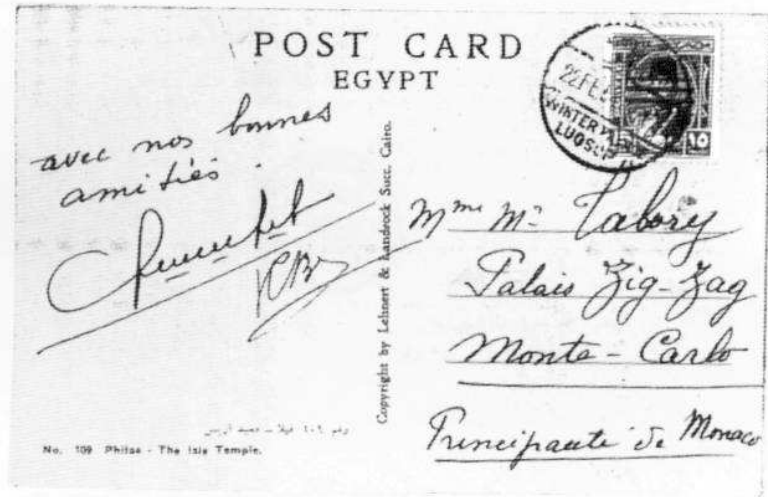 POST CARD
EGYPT
22 FE
WINTER
LUQSOR
١٥
avec nos bonnes
amitiés.
Copyright by Lehnert & Landrock Succ. Cairo.
Mme Mce Tabory
Palais Zig-Zag
Monte-Carlo
Principauté de Monaco
No. 109 Philae - The Isis Temple.